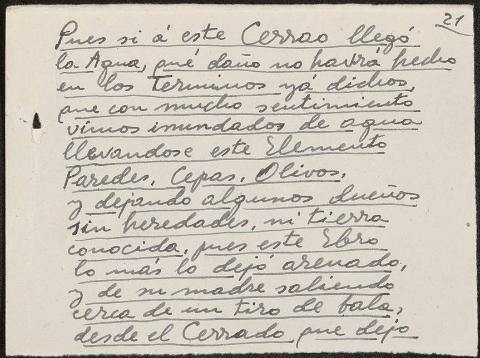 21
Pues si á este Cerrao llegó
la Agua, qué daño no havrá hecho
en los Terminos yá dichos,
que con mucho sentimiento
vimos inundados de agua
llevandose este Elemento
Paredes, Cepas, Olivos,
y dejando algunos dueños
sin heredades, ni tierra
conocida, pues este Ebro
lo más lo dejó arenado,
y de su madre saliendo
cerca de un tiro de bala,
desde el Cerrado que dejo